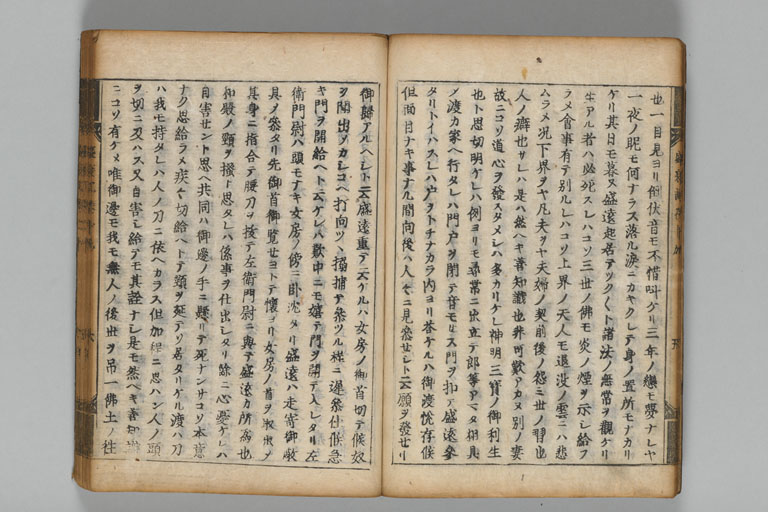 也一目見ヨリ倒伏音モ不惜叫ケリ三年ノ戀モ夢ナレヤ
一夜ノ眤モ何ナラス落ル涙ニカキクレテ身ノ置所モナカリ
ケリ其日モ暮ヌ盛遠起居テツクヽト諸法ノ無常ヲ觀ケリ
生アル者ハ必死スレハコソ三世ノ佛モ炎ノ煙ヲ示シ給フ
ラメ會事有テ別ルレハコソ上界ノ天人モ退没ノ雲ニハ悲
ハラメ况下界ヲヤ凡夫ヲヤ夫婦ノ契前後ノ怨三世ノ習也
人ノ癖也サレハ是ハ然ヘキ善知識也非可歎アカヌ別ノ妻
故ニコソ道心ヲ發スタメシハ多カリケレ神明三寶ノ御利生
也ト思切明ケレハ例ヨリモ尋常ニ出立テ郎等アマタ相具
ノ渡カ家ヘ行タレハ門戸ヲ閉テ音モセス門ヲ扣テ盛遠參
タリトイハスレハ戸ノヲトチナカラ内ヨリ答ケルハ御渡恱存候
但面目ナキ事ナレ間向後ハ人ヽニ見參セシト云願ヲ發セリ
御歸アルヘシト云盛遠重テ云ケルハ女房ノ御首切テ候奴
ヲ聞出シカシコヘ打向ツヽ損捕テ參ツル程ニ遲參仕候急
キ門ヲ開給ヘト云ケレハ歎中ニモ嬉テ門ヲ開テ入レタリ左
衛門尉ハ頭モナキ女房ノ傍ニ卧沈タリ盛遠ハ走寄御敵
具メ參タリ先御首御覽セヨトテ懐ヨリ女房ノ首ヲ取出メ
其身ニ指合テ腰刀ヲ抜テ左衛門尉ニ與テ盛遠カ所爲也
和殿ノ頸ヲ掻ト思タレハ係事ヲ仕出シタリ餘ニ心憂ケレハ
自害セント思ヘ共同ハ御邊ノ手ニ懸リテ死ナンサコソ本意
ナク思給ラメ疾ヽ切給ヘトテ頸ヲ延テソ居タリケル渡ハ刀
ハ我モ持タレハ人ノ刀ニ依ヘカラス但加程ニ思ハン人ノ頭
ヲ切ニ及ハス又自害シ給テモ其詮ナシ是モ然ヘキ善知識
ニコソ有ケメ唯御邊モ我モ無人ノ後世ヲ吊一佛土ノ往